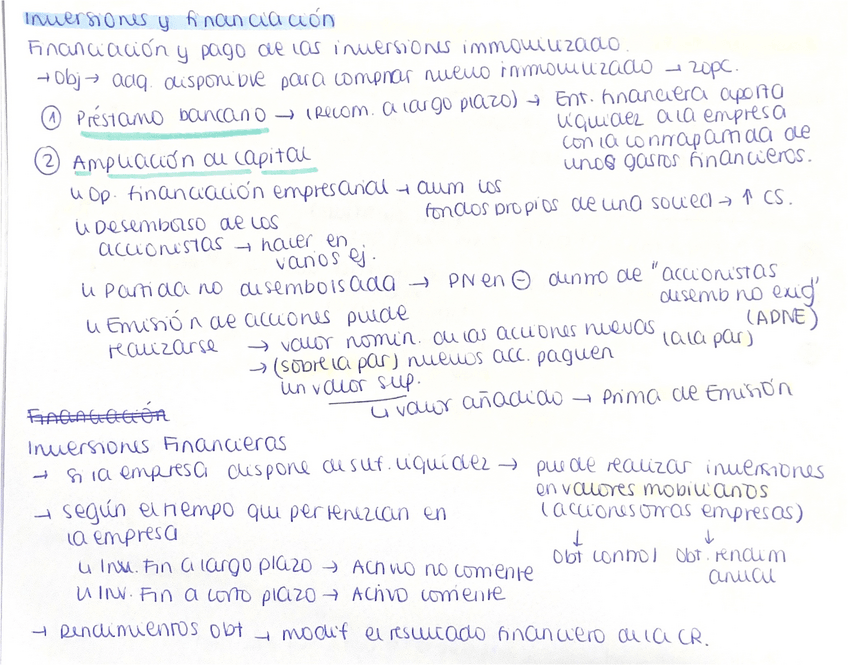 Inversiones y financiación
Financiación y pago de las inversiones inmovilizado.
→ Obj → adq. disponible para comprar nuevo inmovilizado → 2opc.
① Préstamo bancario → (Recom. a largo plazo) → Ent. financiera aporta
liquidez a la empresa
con la contrapartida de
unos gastos financieros.
② Ampliación de capital
↳ Op. financiación empresarial → aum los
fondos propios de una socied → ↑ CS.
↳ Desembolso de los
accionistas → hacer en
varios ej.
↳ Partida no desembolsada → PN en ⊖ dentro de "accionistas
desemb no exig"
(ADNE)
↳ Emisión de acciones puede
realizarse → valor nomin. de las acciones nuevas (a la par)
→ (sobre la par) nuevos acc. paguen
un valor sup.
↳ valor añadido → Prima de Emisión
Financiación
Inversiones Financieras
→ si la empresa dispone de suf. liquidez → puede realizar inversiones
en valores mobiliarios
(acciones otras empresas)
↓ ↓
obt control obt. rendim
anual
→ según el tiempo que pertenezcan en
la empresa
↳ Inv. Fin a largo plazo → Activo no corriente
↳ Inv. Fin a corto plazo → Activo corriente
→ Rendimientos obt → modif el resultado financiero de la CR.